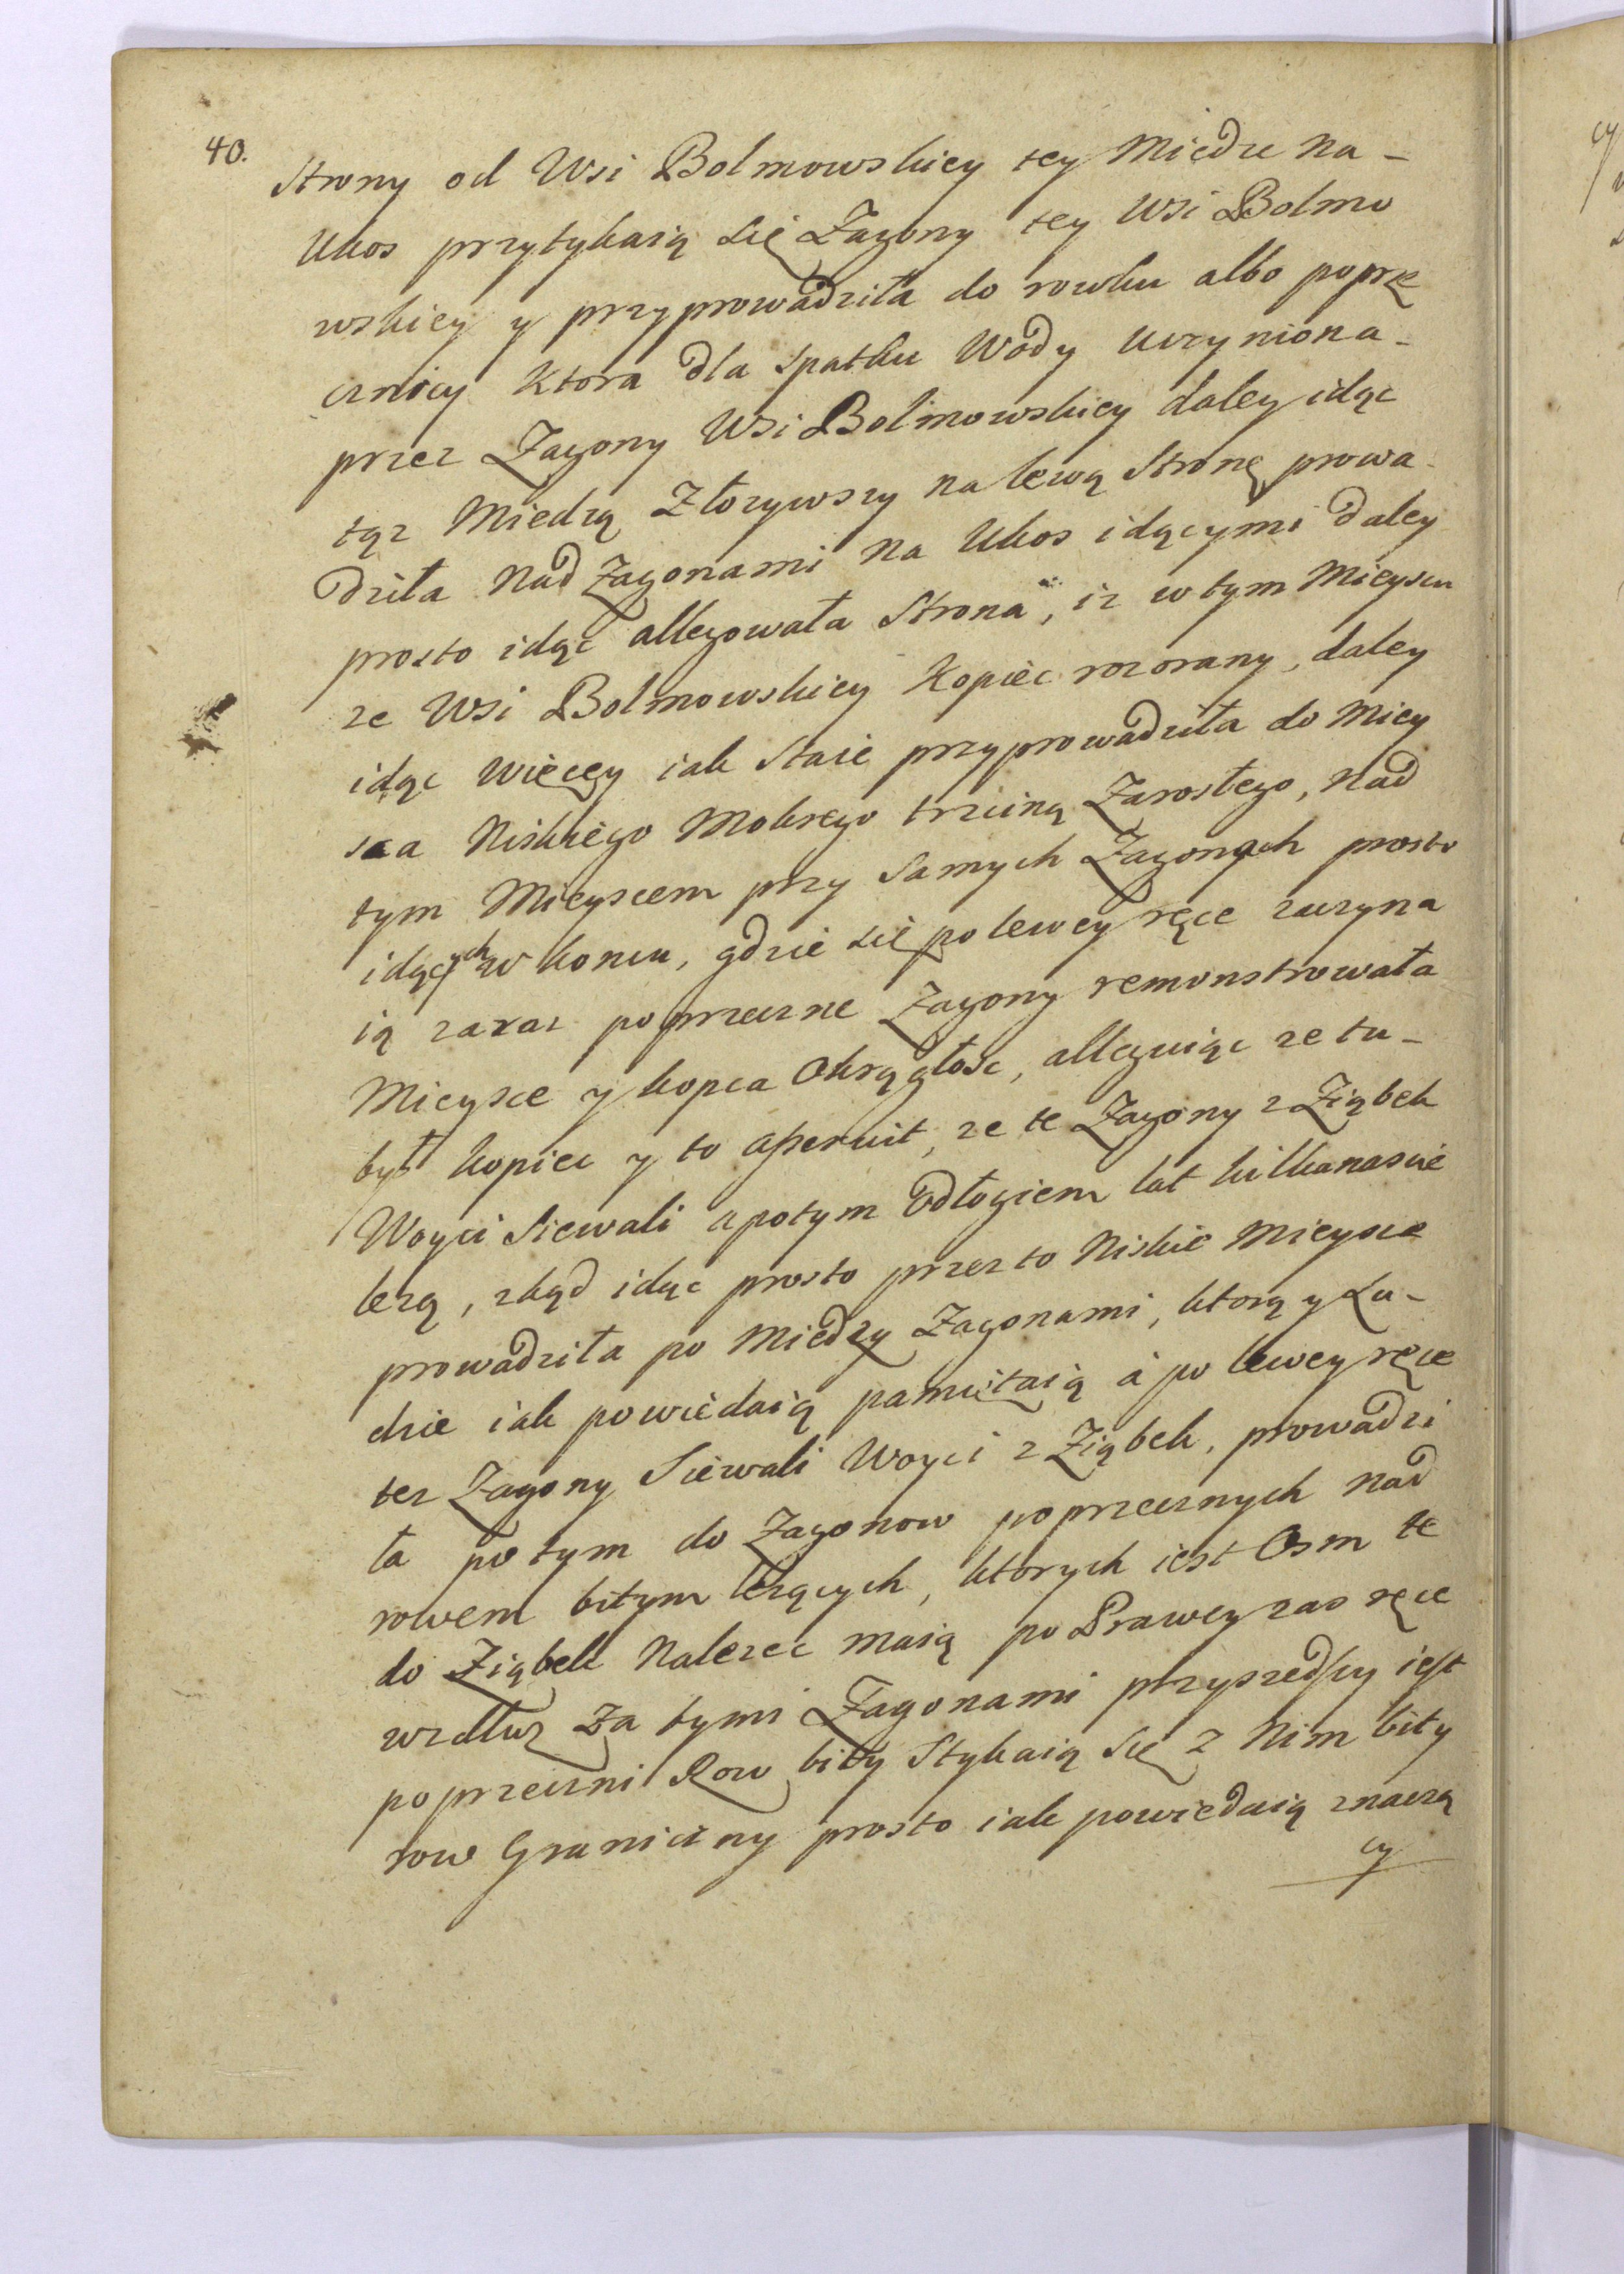 40.
Strony od Wsi Bolmowskiey tey Miedze na-
Ukos przytykaią się Zagony tey Wsi Bolmo
wskiey y przyprowadziła do rowku albo poprze
cznicy ktora dla spatku Wody uczyniona-
przez Zagony Wsi Bolimowskiey daley idąc
tąz Miedzą Złozywszy na lewą Stronę prowa-
dziła nad Zagonami na Ukos idącymi daley
prosto idąc allegowała Strona, iz w tym Mieyscu
ze Wsi Bolmowskiey Kopiec rozorany, daley
idąc więcey iak Staie przyprowadziła do Miey
sca Niskiego Mokrego trzciną Zarosłego, nad
tym Mieyscem przy Samych Zagonach prosto
idących w koncu, gdzie się po lewey ręce zaczyna
ią zaraz poprzeczne Zagony remonstrowała
Mieysce y kopca Okrągłosc, alleguiąc ze tu-
był kopiec y to aperuit, ze te Zagony z Ziąbek
Woyci Siewali a potym Odłogiem lat kilkanascie
lezą, zkąd idąc prosto przez to Niskie Mieysce
prowadziła po Miedzy Zagonami, ktorą y Lu-
dzie iak powiedaią pamiętaią a po lewey ręce
tez Zagony Siewali Woyci z Ziąbek, prowadzi
ła po tym do Zagonow poprzecznych nad
rowem bitym lezących, ktorych iest Osm te
do Ziąbek Nalezec maią po Prawey zas ręce
wzdłuz Za tymi Zagonami przyszedszy iest
poprzeczni Row bity Stykaią się z Nim bity
row Graniczny prosto iak powiedaią znaczą
cy